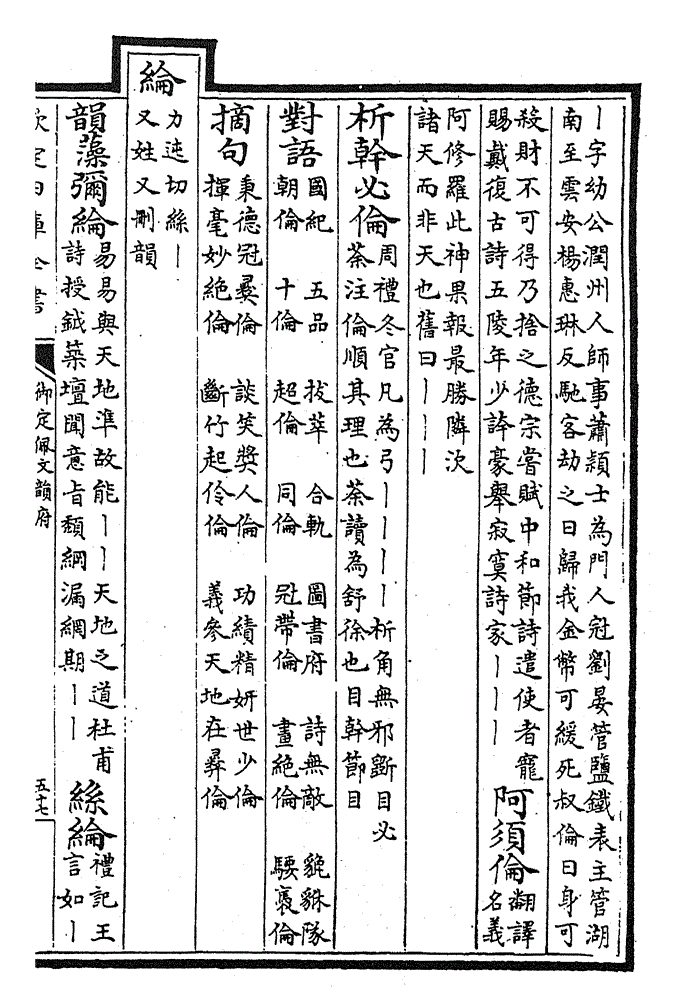 ｜字幼公潤州人師事蕭穎士為門人冠劉晏管鹽鐵表主管湖
南至雲安楊惠琳反馳客劫之曰歸我金幣可緩死叔倫曰身可
殺財不可得乃捨之德宗嘗賦中和節詩遣使者寵
賜戴復古詩五陵年少誇豪舉寂寞詩家｜｜｜
阿須倫
翻譯
名義
阿修羅此神果報最勝隣次
諸天而非天也舊曰｜｜｜
析幹必倫
周禮冬官凡為弓｜｜｜｜析角無邪斵目必
荼注倫順其理也荼讀為舒徐也目幹節目
對語
國紀 五品 拔萃 合軌 圖書府 詩無敵 貔貅隊
朝倫 十倫 超倫 同倫 冠帶倫 畫絕倫 騕褭倫
摘句
秉德冠彝倫 談笑獎人倫 功績精妍世少倫
揮毫妙絕倫 斷竹起伶倫 義參天地在彝倫
綸
力迍切絲｜
又姓又刪韻
韻藻彌綸
易易與天地準故能｜｜天地之道杜甫
詩授鉞築壇聞意旨頹綱漏網期｜｜
絲綸
禮記王
言如｜
欽定四庫全書
御定佩文韻府
五十七